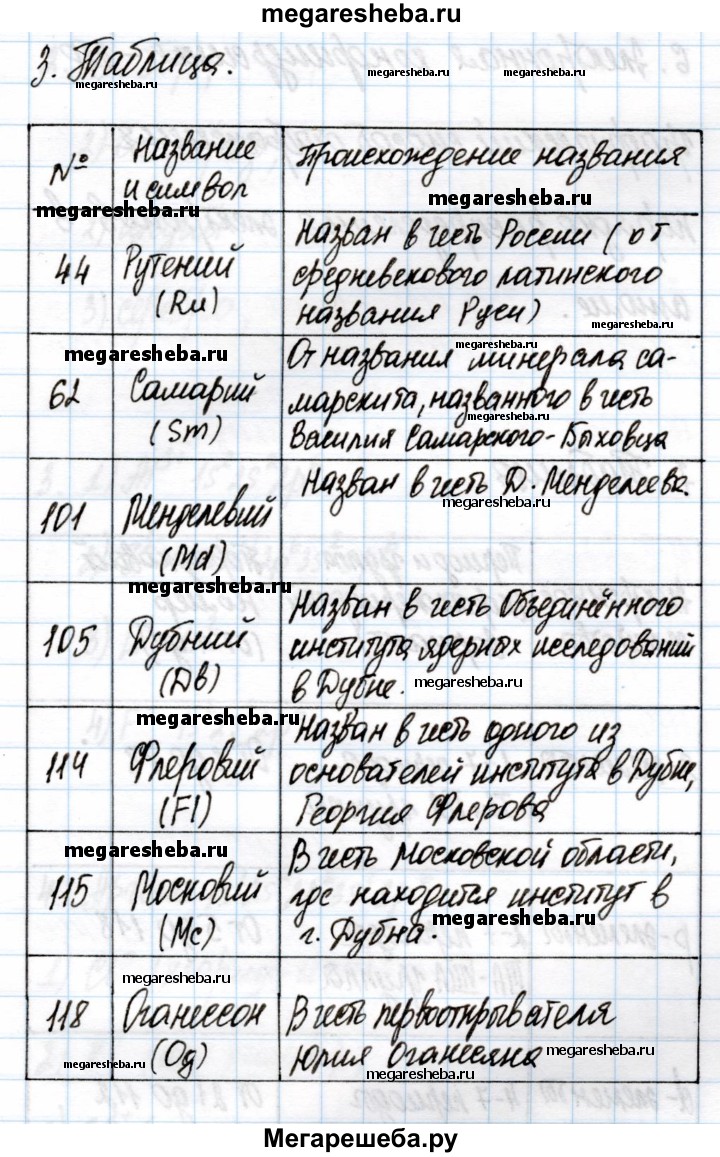 megaresheba.ru
3. Таблица.
megaresheba.ru
megaresheba.ru
megaresheba.ru
№
Название
и символ
Происхождение названия
megaresheba.ru
megaresheba.ru
44
Рутений
(Ru)
Назван в честь России (от
средневекового латинского
названия Руси)
megaresheba.ru
megaresheba.ru
62
Самарий
(Sm)
От названия минерала са-
марскита, названного в честь
Василия Самарского-Быховца
megaresheba.ru
megaresheba.ru
101
Менделевий
(Md)
Назван в честь Д. Менделеева.
megaresheba.ru
megaresheba.ru
105
Дубний
(Дв)
Назван в честь Объединённого
института ядерных исследований
в Дубне.
megaresheba.ru
megaresheba.ru
megaresheba.ru
114
Флеровий
(Fl)
Назван в честь одного из
основателей института в Дубне,
Георгия Флерова
megaresheba.ru
115
Московий
(Mc)
В честь Московской области,
где находится институт в
г. Дубна.
megaresheba.ru
megaresheba.ru
118
Оганессон
(Og)
В честь первооткрывателя
Юрия Оганесяна
megaresheba.ru
megaresheba.ru
megaresheba.ru
Мегарешеба.ру